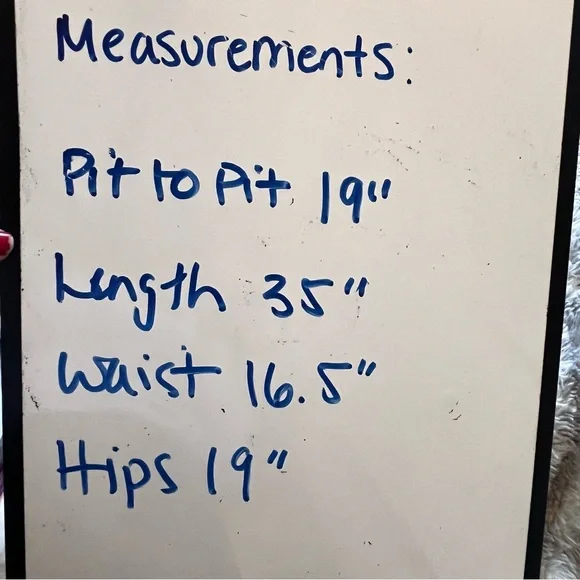 Measurements:
Pit to Pit 19"
Length 35"
Waist 16.5"
Hips 19"